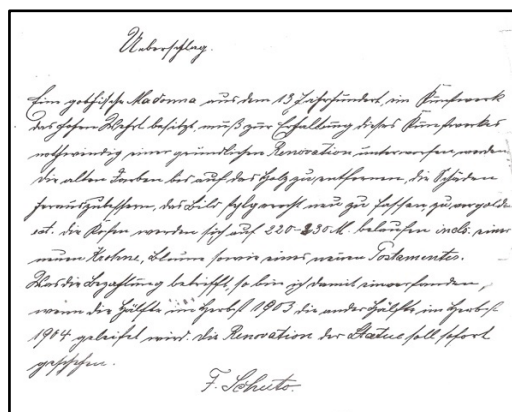 Ueberschlag.
Eine gothische Madonna aus dem 13 Jahrhundert, ein Kunstwerk
das hohen Wehrt besitzt, muß zur Erhaltung dieses Kunstwerkes
nothwendig einer gründlichen Renovation unterworfen werden
die alten Farben bis auf das Holz zu entfernen, die Schäden
herauszubessern, das Bild stylgerecht neu zu fassen, zu vergolden
ect. die Kosten werden sich auf 220-230 M. belaufen incls. einer
neuen Krohne, Blume sowie eines neuen Postamentes.
Was die Bezahlung betrifft, so bin ich damit einverstanden,
wenn die Hälfte im Herbst 1903 die ander Hälfte im Herbst
1904 geleistet wird. die Renovation der Statue soll sofort
geschehen.
F. Schuto.